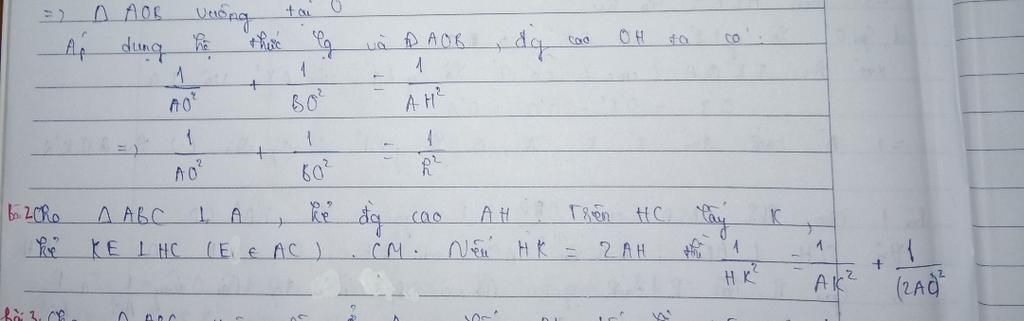 => Δ AOB vuông tại O
Áp dụng hệ thức lg và Δ AOB, đg cao OH ta có:
1/AO² + 1/BO² = 1/AH²
=> 1/AO² + 1/BO² = 1/R²
Bài 2 Cho Δ ABC ⊥ A, kẻ đg cao AH. Trên HC lấy K,
kẻ KE ⊥ HC (E ∈ AC). CM. Nếu HK = 2AH thì 1/HK² = 1/AK² + 1/(2AC)²
Bài 3. Cho Δ ABC